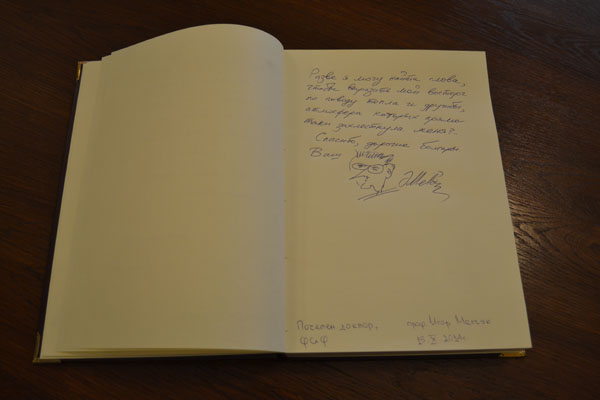 Разве я могу найти слова,
чтобы выразить мой восторг
по поводу тепла и дружбы,
атмосфера которых прямо
таки захлестнула меня?
Спасибо, дорогие болгары.
Ваш
Почетен доктор,
проф. Игор
ФСФ
2014